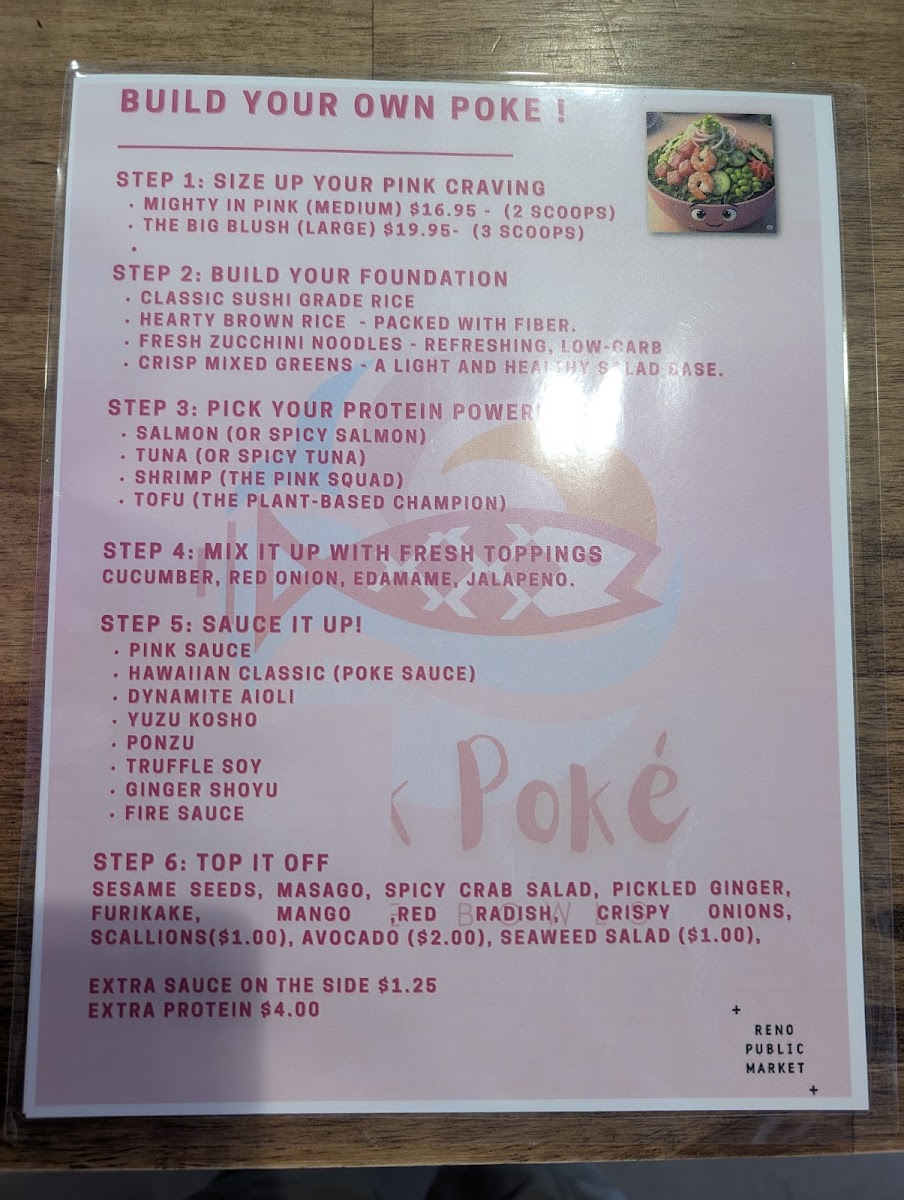 BUILD YOUR OWN POKE !
STEP 1: SIZE UP YOUR PINK CRAVING
• MIGHTY IN PINK (MEDIUM) $16.95 - (2 SCOOPS)
• THE BIG BLUSH (LARGE) $19.95- (3 SCOOPS)
•
STEP 2: BUILD YOUR FOUNDATION
• CLASSIC SUSHI GRADE RICE
• HEARTY BROWN RICE - PACKED WITH FIBER.
• FRESH ZUCCHINI NOODLES - REFRESHING, LOW-CARB
• CRISP MIXED GREENS - A LIGHT AND HEALTHY SALAD BASE.
STEP 3: PICK YOUR PROTEIN POWER
• SALMON (OR SPICY SALMON)
• TUNA (OR SPICY TUNA)
• SHRIMP (THE PINK SQUAD)
• TOFU (THE PLANT-BASED CHAMPION)
STEP 4: MIX IT UP WITH FRESH TOPPINGS
CUCUMBER, RED ONION, EDAMAME, JALAPENO.
STEP 5: SAUCE IT UP!
• PINK SAUCE
• HAWAIIAN CLASSIC (POKE SAUCE)
• DYNAMITE AIOLI
• YUZU KOSHO
• PONZU
• TRUFFLE SOY
• GINGER SHOYU
• FIRE SAUCE
k Poké
STEP 6: TOP IT OFF
SESAME SEEDS, MASAGO, SPICY CRAB SALAD, PICKLED GINGER,
FURIKAKE, MANGO ,RED RADISH, CRISPY ONIONS,
E BOWLS
SCALLIONS($1.00), AVOCADO ($2.00), SEAWEED SALAD ($1.00),
EXTRA SAUCE ON THE SIDE $1.25
EXTRA PROTEIN $4.00
RENO
PUBLIC
MARKET